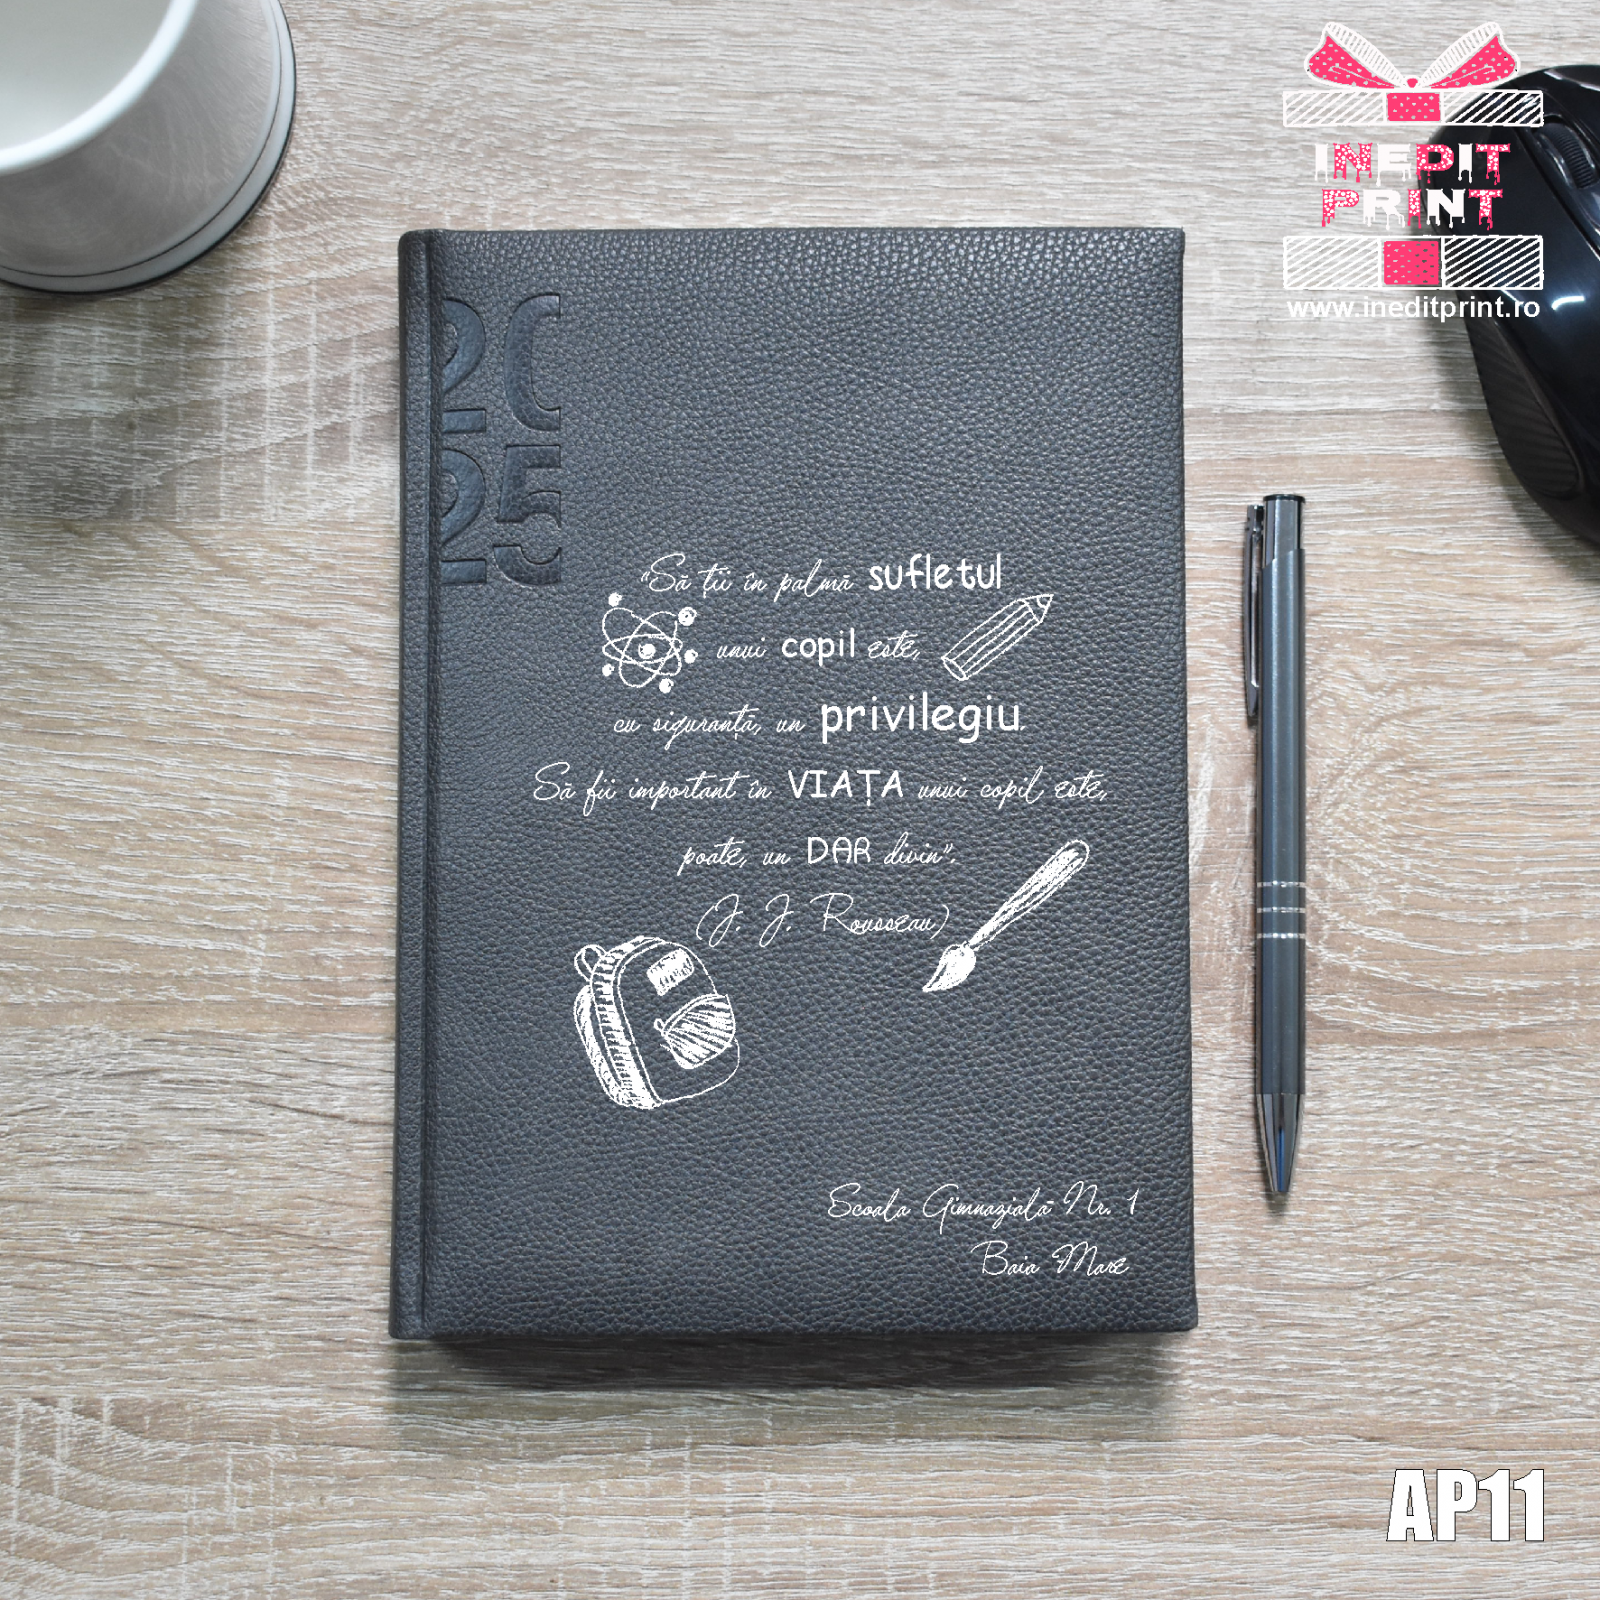 INEDIT
PRINT
www.ineditprint.ro
20
25
"Să ții în palmă sufletul
unui copil este,
cu siguranță, un privilegiu.
Să fii important în VIAȚA unui copil este,
poate, un DAR divin".
(J. J. Rousseau)
Scoala Gimnazială Nr. 1
Baia Mare
AP11